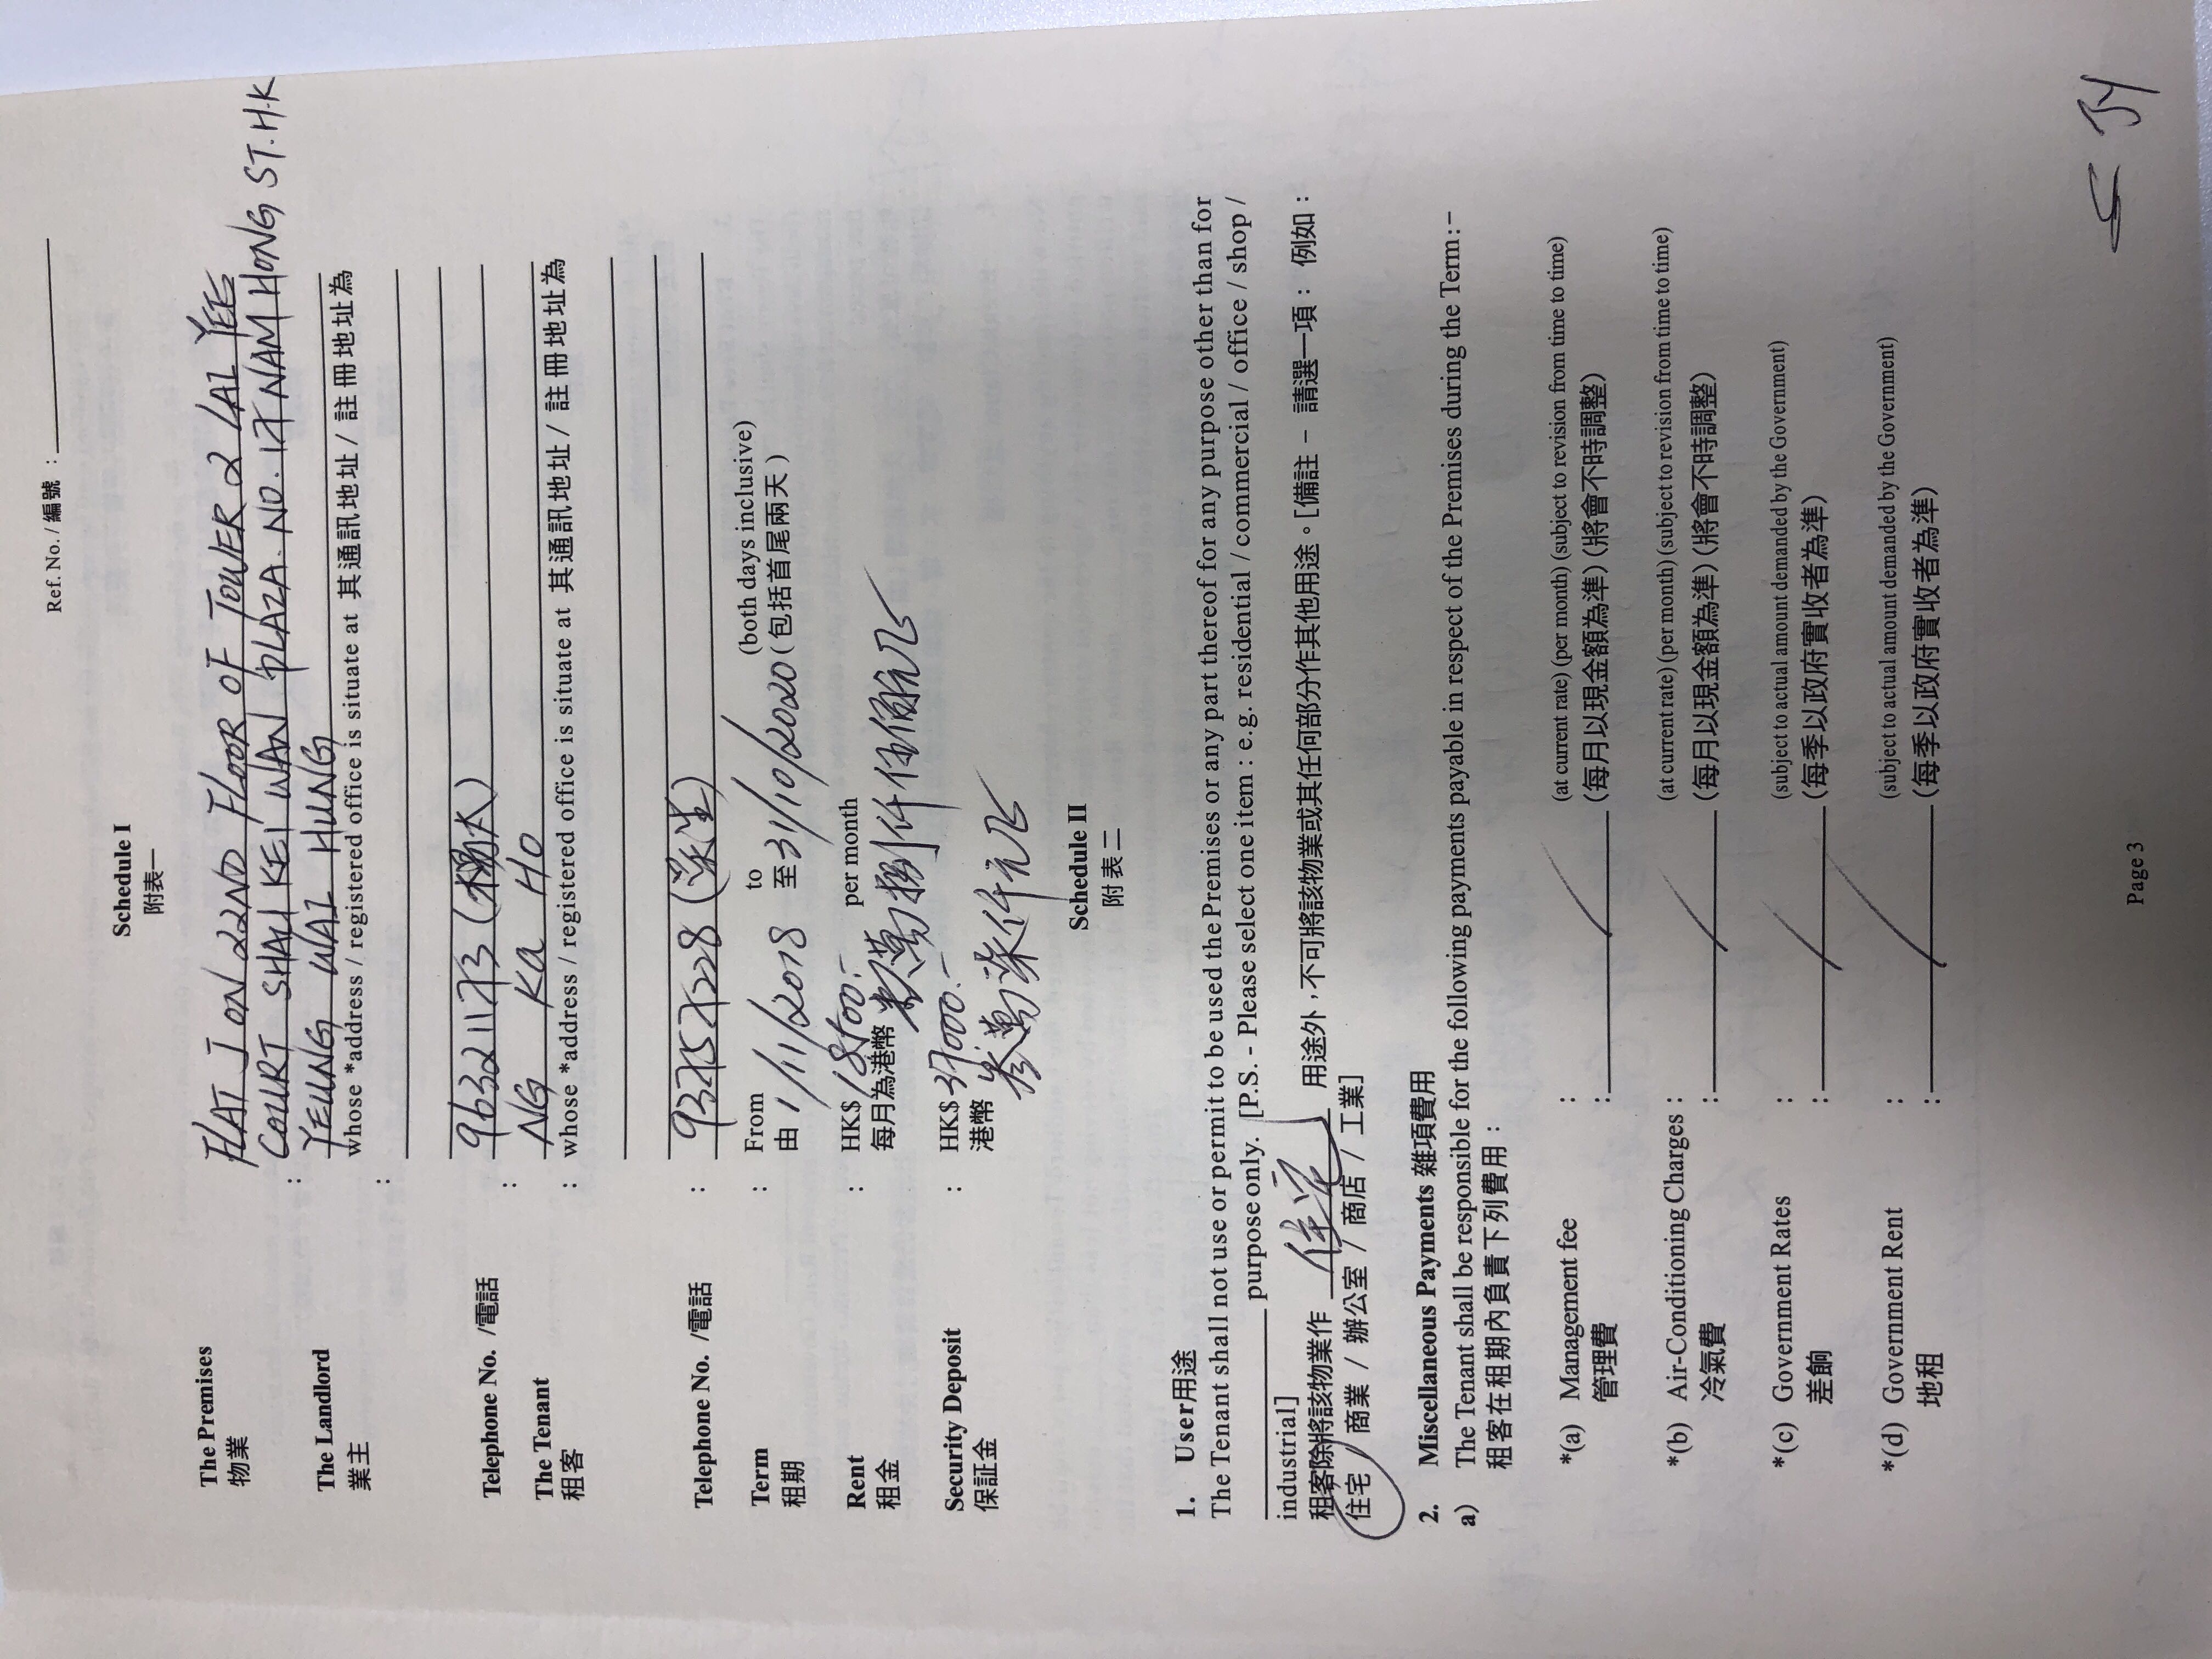 Ref. No. / 編號 :
Schedule I
附表一
The Premises
物業
FLAT J ON 22ND FLOOR OF TOWER 2 LAI YEE
: COURT SHAU KEI WAN PLAZA. NO. 17 NAM HONG ST. H.K
The Landlord
業主
YEUNG WAI HUNG
whose *address / registered office is situate at 其通訊地址 / 註冊地址為
:
Telephone No. /電話 : 96321173 (楊太)
The Tenant
租客
NG Ka Ho
: whose *address / registered office is situate at 其通訊地址 / 註冊地址為
Telephone No. /電話 : 93757228
Term : From to (both days inclusive)
租期 由 1/11/2018 至 31/10/2020 (包括首尾兩天)
Rent : HK$ 18500.- per month
租金 每月為港幣 萬捌仟伍佰元正
Security Deposit : HK$ 37000.-
保証金 港幣 叁萬柒仟元正
Schedule II
附表二
1. User用途
The Tenant shall not use or permit to be used the Premises or any part thereof for any purpose other than for
purpose only. [P.S. - Please select one item : e.g. residential / commercial / office / shop /
industrial]
租客除將該物業作 住宅 用途外，不可將該物業或其任何部分作其他用途。[備註 – 請選一項：例如：
住宅 / 商業 / 辦公室 / 商店 / 工業]
2. Miscellaneous Payments 雜項費用
a) The Tenant shall be responsible for the following payments payable in respect of the Premises during the Term:–
租客在租期內負責下列費用：
*(a) Management fee : (at current rate) (per month) (subject to revision from time to time)
管理費 : (每月以現金額為準) (將會不時調整)
*(b) Air-Conditioning Charges : (at current rate) (per month) (subject to revision from time to time)
冷氣費 : (每月以現金額為準) (將會不時調整)
*(c) Government Rates : (subject to actual amount demanded by the Government)
差餉 : (每季以政府實收者為準)
*(d) Government Rent : (subject to actual amount demanded by the Government)
地租 : (每季以政府實收者為準)
Page 3